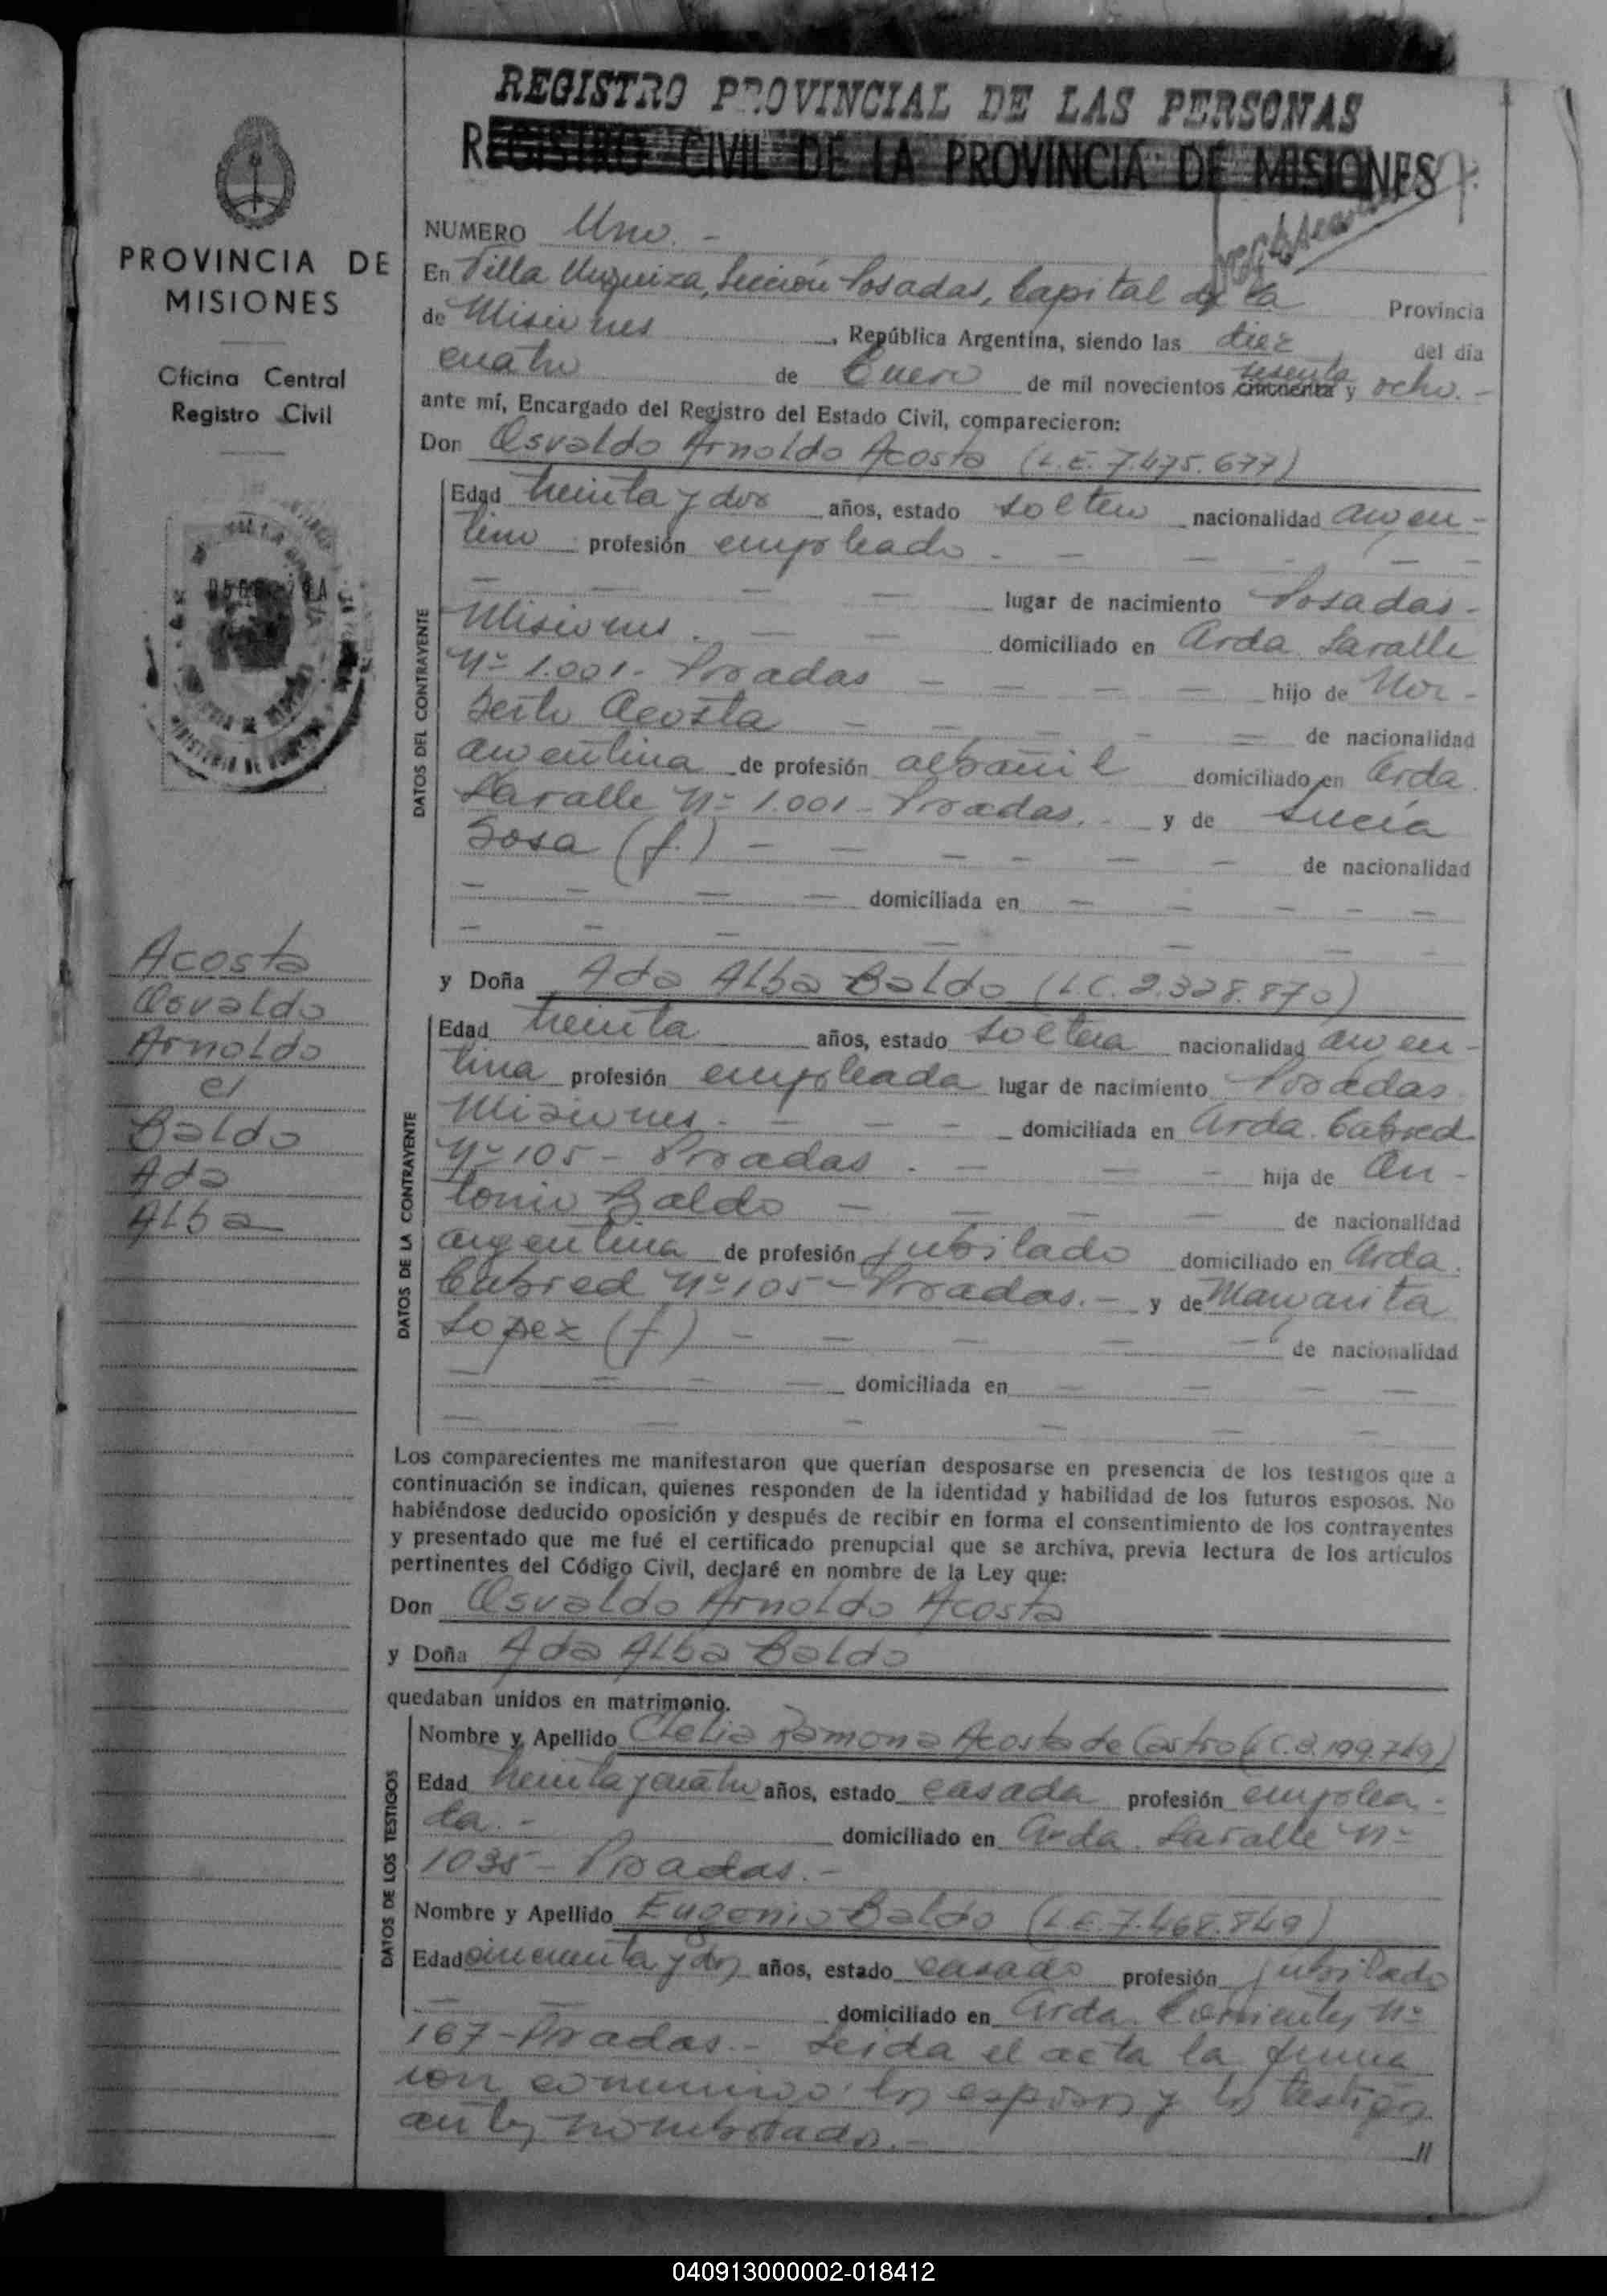 REGISTRO PROVINCIAL DE LAS PERSONAS
REGISTRO CIVIL DE LA PROVINCIA DE MISIONES
PROVINCIA DE
MISIONES
Oficina Central
Registro Civil
Acosta
Osvaldo
Arnoldo
e/
Baldo
Ada
Alba
NUMERO Uno. -
En Villa Urquiza, Sección Posadas, Capital de la Provincia
de Misiones, República Argentina, siendo las diez del día
cuatro de Enero de mil novecientos cincuenta sesenta y ocho. -
ante mí, Encargado del Registro del Estado Civil, comparecieron:
Don Osvaldo Arnoldo Acosta (L.E. 7.475.677)
DATOS DEL CONTRAYENTE
Edad treinta y dos años, estado soltero nacionalidad argen-
tino profesión empleado. - - - - -
- - - - lugar de nacimiento Posadas -
Misiones. - - domiciliado en Avda. Lavalle
Nº 1.001 - Posadas - - - - hijo de Nor-
berto Acosta - - - - = de nacionalidad
argentina de profesión albañil domiciliado en Avda.
Lavalle Nº 1.001 - Posadas. - y de Lucía
Sosa (f.) - - - - - - de nacionalidad
- - - - domiciliada en - - - - -
- - - - - - -
y Doña Ada Alba Baldo (L.C. 2.328.870)
DATOS DE LA CONTRAYENTE
Edad treinta años, estado soltera nacionalidad argen-
tina profesión empleada lugar de nacimiento Posadas
Misiones. - - - - domiciliada en Avda. Cabred
Nº 105 - Posadas. - - - hija de An-
tonio Baldo - - - - de nacionalidad
argentina de profesión jubilado domiciliado en Avda.
Cabred Nº 105 - Posadas. - y de Margarita
Lopez (f) - - - - - de nacionalidad
- - - - domiciliada en - - - -
- - - - - -
Los comparecientes me manifestaron que querían desposarse en presencia de los testigos que a
continuación se indican, quienes responden de la identidad y habilidad de los futuros esposos. No
habiéndose deducido oposición y después de recibir en forma el consentimiento de los contrayentes
y presentado que me fué el certificado prenupcial que se archiva, previa lectura de los artículos
pertinentes del Código Civil, declaré en nombre de la Ley que:
Don Osvaldo Arnoldo Acosta
y Doña Ada Alba Baldo
quedaban unidos en matrimonio.
DATOS DE LOS TESTIGOS
Nombre y Apellido Clelia Ramona Acosta de Castro (L.C. 2.199.749)
Edad treinta y cuatro años, estado casada profesión emplea-
da. - domiciliado en Avda. Lavalle Nº
1035 - Posadas. -
Nombre y Apellido Eugenio Baldo (L.E. 7.468.849)
Edad cincuenta y dos años, estado casado profesión jubilado
- - domiciliado en Avda. Corrientes Nº
167 - Posadas. - Leída el acta la firma
ron conmigo los esposos y los testigos
antes nombrados. - //
040913000002-018412